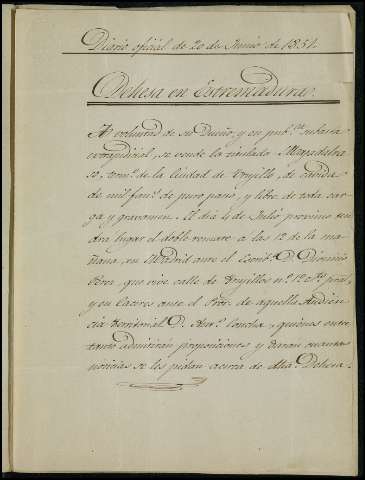 Diario oficial de 20 de Junio de 1851.
Dehesa en Extremadura.
A voluntad de su Dueño, y en pub.ca subasta
extrajudicial, se vende la titulada
so, term.o de la Ciudad de Trujillo, de cabida
de mil fan.s de puro pasto, y libre de toda car-
ga y gravamen. El dia 4 de Julio procsimo ten-
dra lugar el doble remate a las 12 de la ma-
ñana, en Madrid ante el Escrib.o D. Dionisio
Perez, que vive calle de Trujillos n.o 1.o c.to pral,
y en Caceres ante el Proc.r de aquella Audien-
cia territorial D. Ant.o Concha, quienes entre
tanto admitirán proposiciones y daran cuantas
noticias se les pidan acerca de dha. Dehesa.